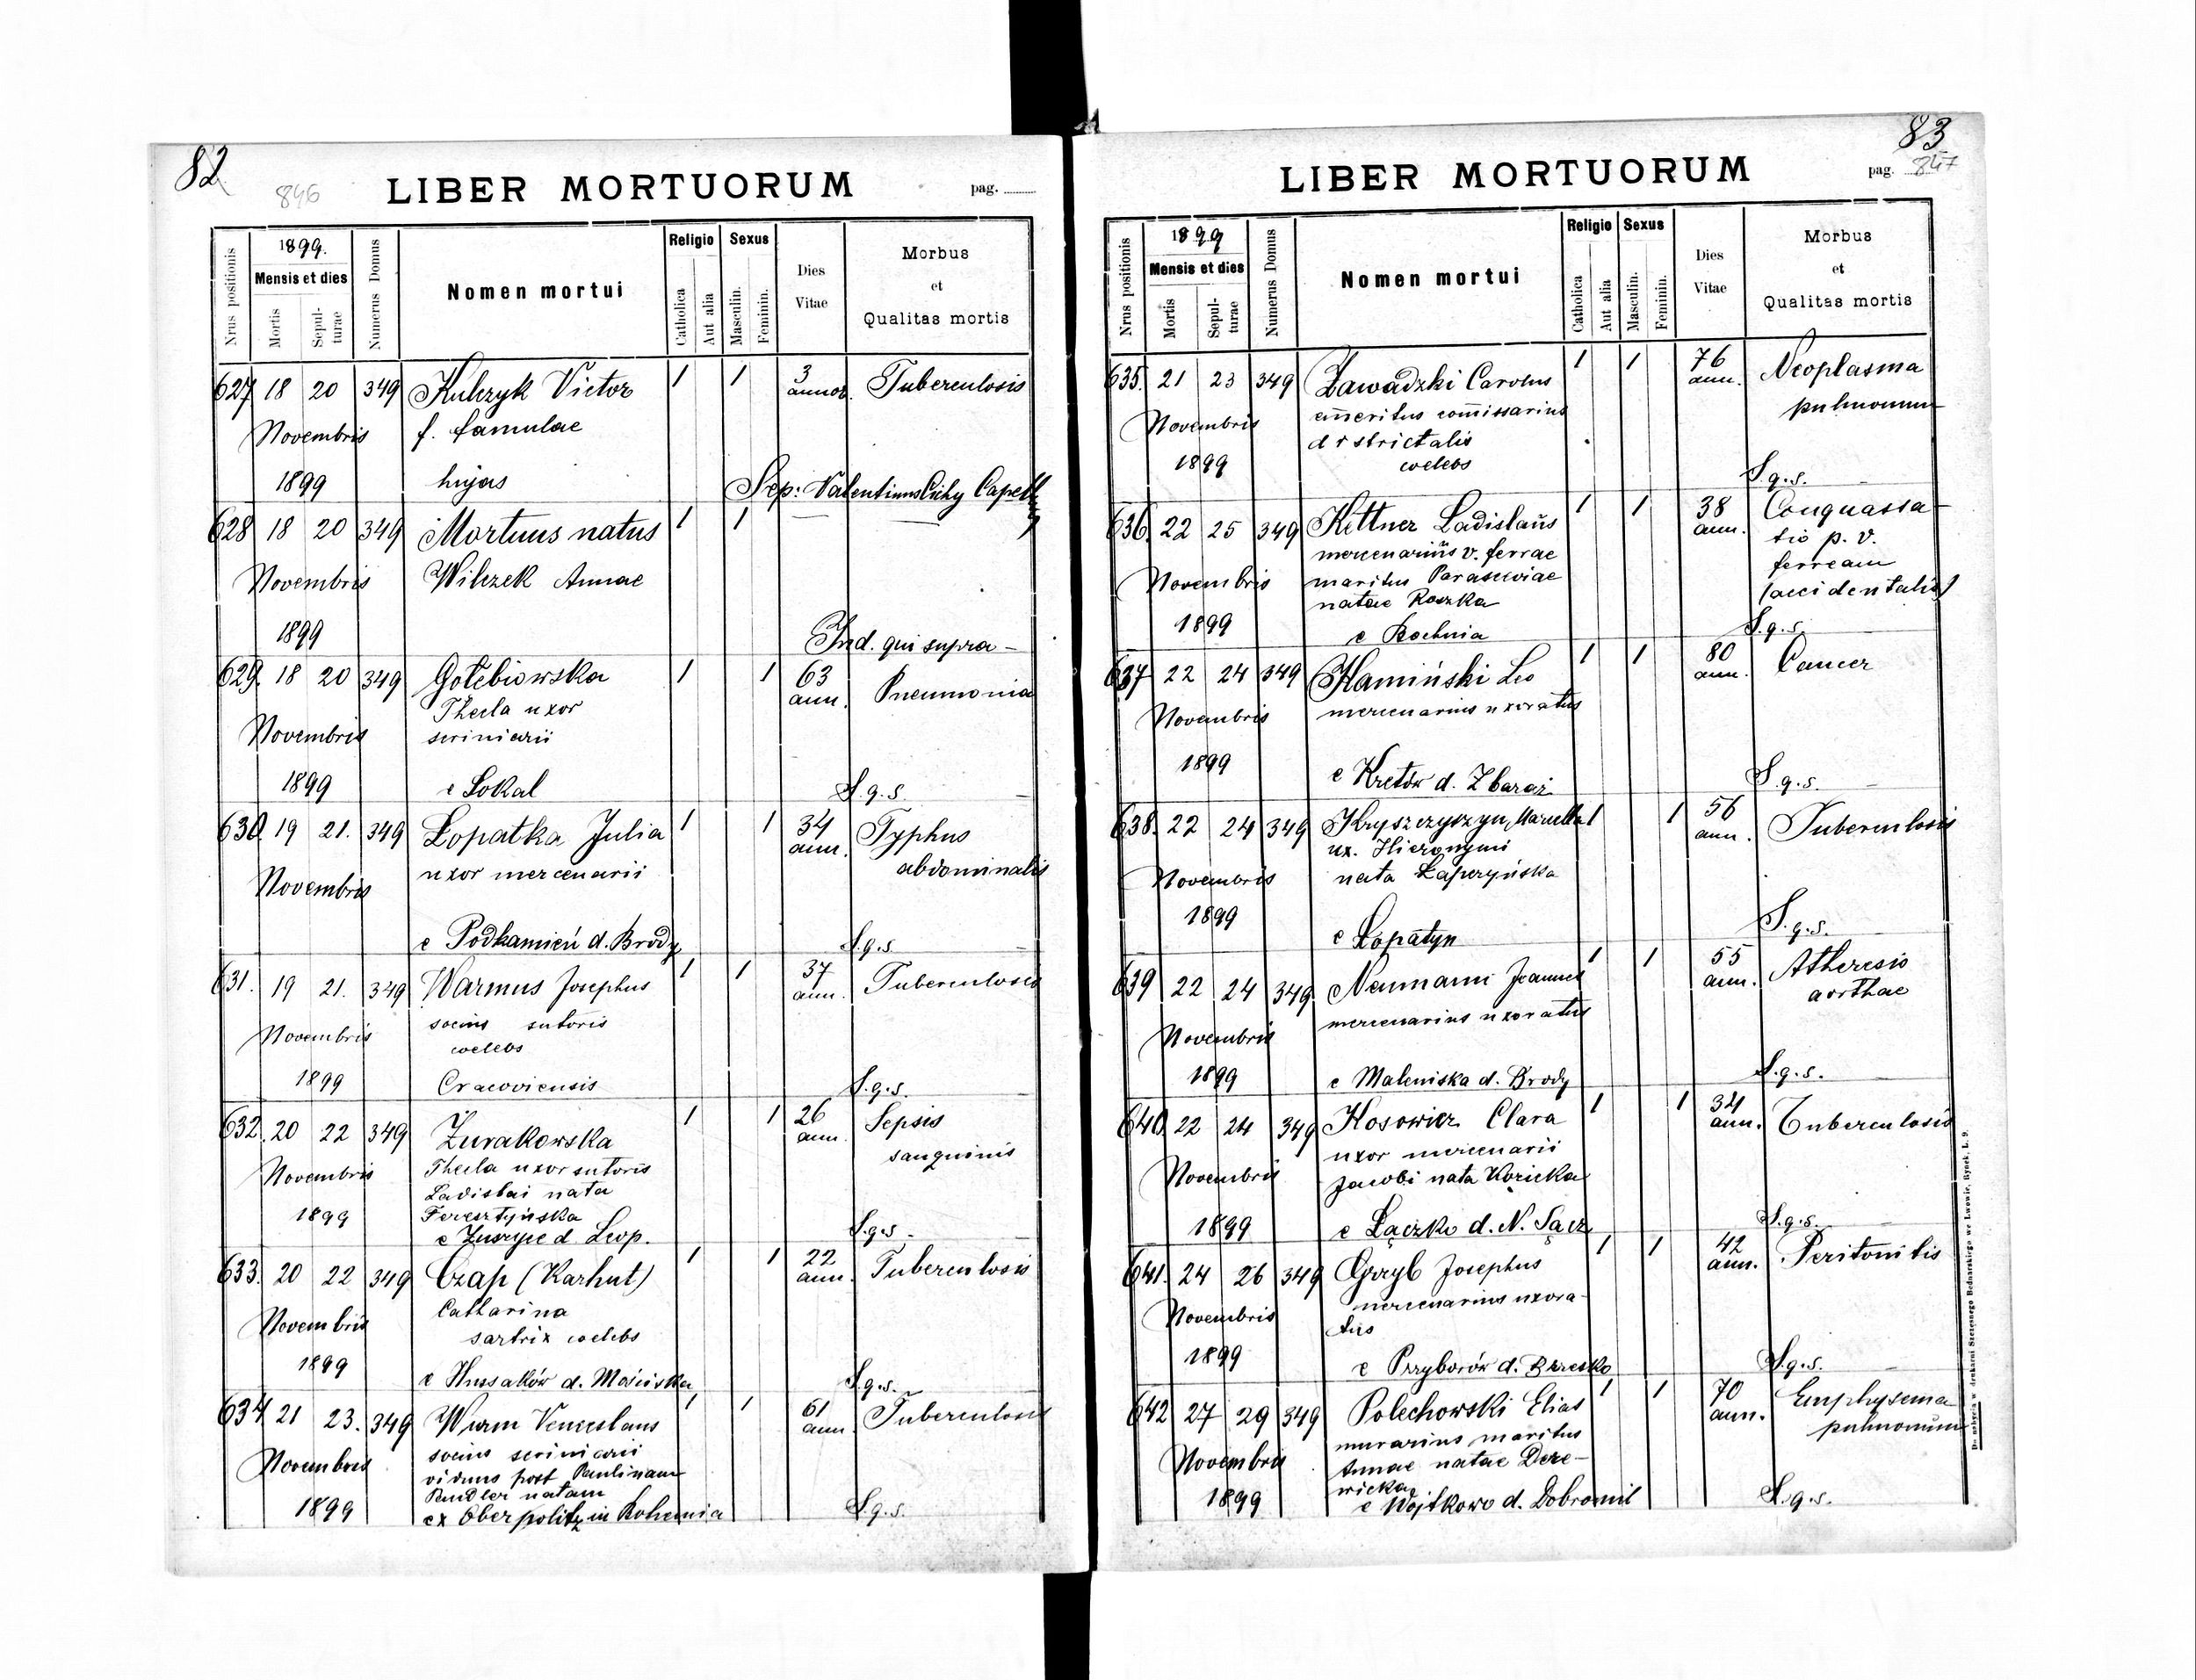 82
846
LIBER MORTUORUM
pag.
Nrus positionis
1899.
Mensis et dies
Mortis
Sepul-
turae
Numerus Domus
Nomen mortui
Religio
Catholica
Aut alia
Sexus
Masculin.
Feminin.
Dies
Vitae
Morbus
et
Qualitas mortis
627 18 20 349 Kulczyk Victor 1 1 3 Tuberculosis
annor.
Novembris f. famulae
1899 hujas Sep: Valentinus Cichy Capell
628 18 20 349 Mortuus natus 1 1
Novembris Wilczek Annae
1899 Ind. qui supra
629. 18 20 349 Gołębiowska 1 1 63 Pneumonia
Thecla uxor ann.
Novembris scriniarii
1899 e Sokal S.q.s.
630. 19 21. 349 Łopatka Julia 1 1 34 Typhus
ann. abdominalis
Novembris uxor mercenarii
e Podkamień d. Brody S.q.s.
631. 19 21. 349 Warmus Josephus 1 1 37 Tuberculosis
ann.
Novembris socius sutoris
coelebs
1899 Cracoviensis S.q.s.
632. 20 22 349 Żurakowska 1 1 26 Sepsis
ann. sanguinis
Novembris Thecla uxor sutoris
Ladislai nata
1899 Feresztyńska
e Leop. S.q.s.
633. 20 22 349 Czap (Karhut) 1 1 22 Tuberculosis
Catharina ann.
Novembris sartrix coelebs
1899 e Hussaków d. Mościska S.q.s.
634 21 23. 349 Wurm Venceslaus 1 1 61 Tuberculosis
ann.
socius scriniarii
Novembris viduus post Paulinam
natam
1899 ex Oberpolitz in Bohemia S.q.s.
83
LIBER MORTUORUM
pag. 847
Nrus positionis
1899
Mensis et dies
Mortis
Sepul-
turae
Numerus Domus
Nomen mortui
Religio
Catholica
Aut alia
Sexus
Masculin.
Feminin.
Dies
Vitae
Morbus
et
Qualitas mortis
635. 21 23 349 Zawadzki Carolus 1 1 76 Neoplasma
ann. pulmonum
Novembris emeritus comissarius
districtalis
1899 coelebs S.q.s.
636. 22 25 349 Kettner Ladislaus 1 1 38 Conquassa-
ann. tio p. v.
mercenarius v. ferrae ferream
Novembris maritus Parasceviae (accidentalis)
natae Roszka
1899 e Bochnia S.q.s.
637 22 24 349 Kamiński Leo 1 1 80 Cancer
ann.
Novembris mercenarius uxoratus
1899 e Kretów d. Zbaraż S.q.s.
638. 22 24 349 Kryszczyszyn Marcella 1 1 56 Tuberculosis
ann.
ux. Hieronymi
Novembris nata Łapczyńska
1899 e Łopatyn S.q.s.
639 22 24 349 Neumann Joannes 1 1 55 Atheresis
ann. aorthae
mercenarius uxoratus
Novembris
1899 e Maleniska d. Brody S.q.s.
640 22 24 349 Kosowicz Clara 1 1 34 Tuberculosis
ann.
uxor mercenarii
Novembris Jacobi nata Kozicka
1899 e Łączko d. N. Sącz S.q.s.
641. 24 26 349 Grzyb Josephus 1 1 42 Peritonitis
ann.
mercenarius uxora-
Novembris tus
1899 e Przyborów d. Brzesko S.q.s.
642 27 29 349 Polechowski Elias 1 1 70 Emphysema
ann. pulmonum
murarius maritus
Novembris Annae natae Dere-
wicka
1899 e Wojtkowo d. Dobromil S.q.s.
Do nabycia w drukarni Szczęsnego Bednarskiego we Lwowie, Rynek, L. 9.